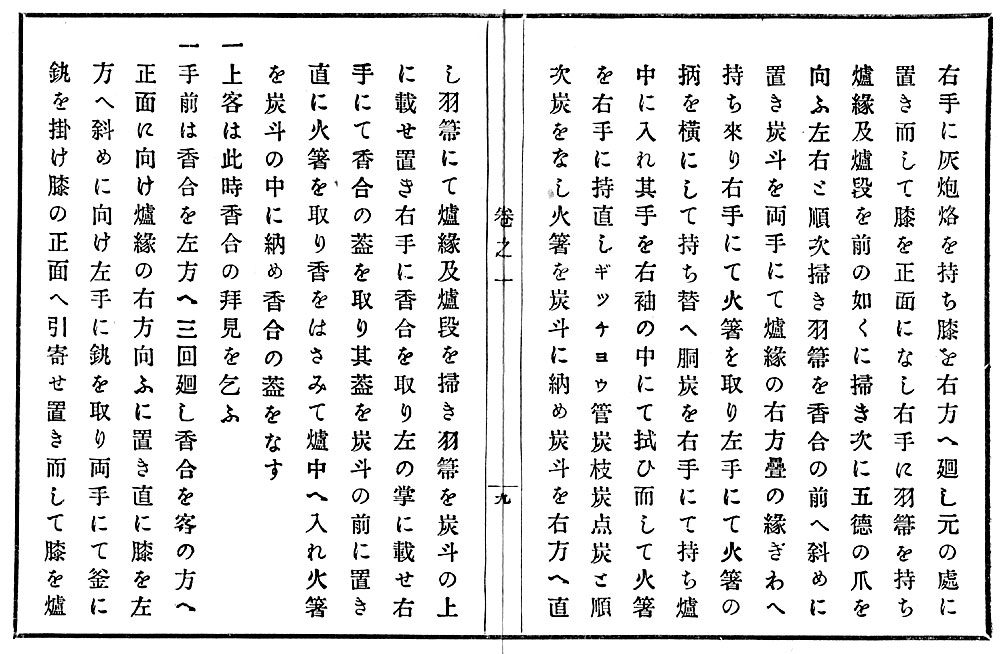 右手に灰炮烙を持ち膝を右方へ廻し元の處に
置き而して膝を正面になし右手に羽箒を持ち
爐縁及爐段を前の如くに掃き次に五德の爪を
向ふ左右と順次掃き羽箒を香合の前へ斜めに
置き炭斗を両手にて爐縁の右方疊の縁ぎわへ
持ち來り右手にて火箸を取り左手にて火箸の
柄を橫にして持ち替へ胴炭を右手にて持ち爐
中に入れ其手を右袖の中にて拭ひ而して火箸
を右手に持直しギッチョウ管炭枝炭点炭と順
次炭をなし火箸を炭斗に納め炭斗を右方へ直
卷之一
九
し羽箒にて爐縁及爐段を掃き羽箒を炭斗の上
に載せ置き右手に香合を取り左の掌に載せ右
手にて香合の葢を取り其葢を炭斗の前に置き
直に火箸を取り香をはさみて爐中へ入れ火箸
を炭斗の中に納め香合の葢をなす
一上客は此時香合の拜見を乞ふ
一手前は香合を左方へ三回廻し香合を客の方へ
正面に向け爐縁の右方向ふに置き直に膝を左
方へ斜めに向け左手に釻を取り両手にて釜に
釻を掛け膝の正面へ引寄せ置き而して膝を爐